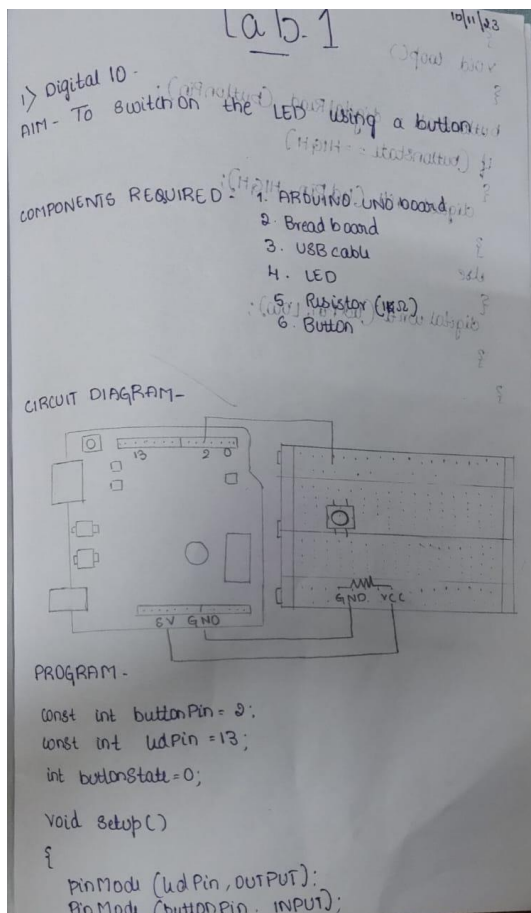 Lab.1
10/11/23
1) Digital IO -
AIM - To switch on the LED using a button
COMPONENTS REQUIRED - 1. ARDUINO UNO board
2. Bread board
3. USB cable
4. LED
5. Resistor (1KΩ)
6. Button
CIRCUIT DIAGRAM-
13 2 0
5V GND
GND VCC
PROGRAM -
const int buttonPin = 2;
const int ledPin = 13;
int buttonState = 0;
void setup()
{
pinMode (ledPin, OUTPUT);
PinMode (buttonPin, INPUT);